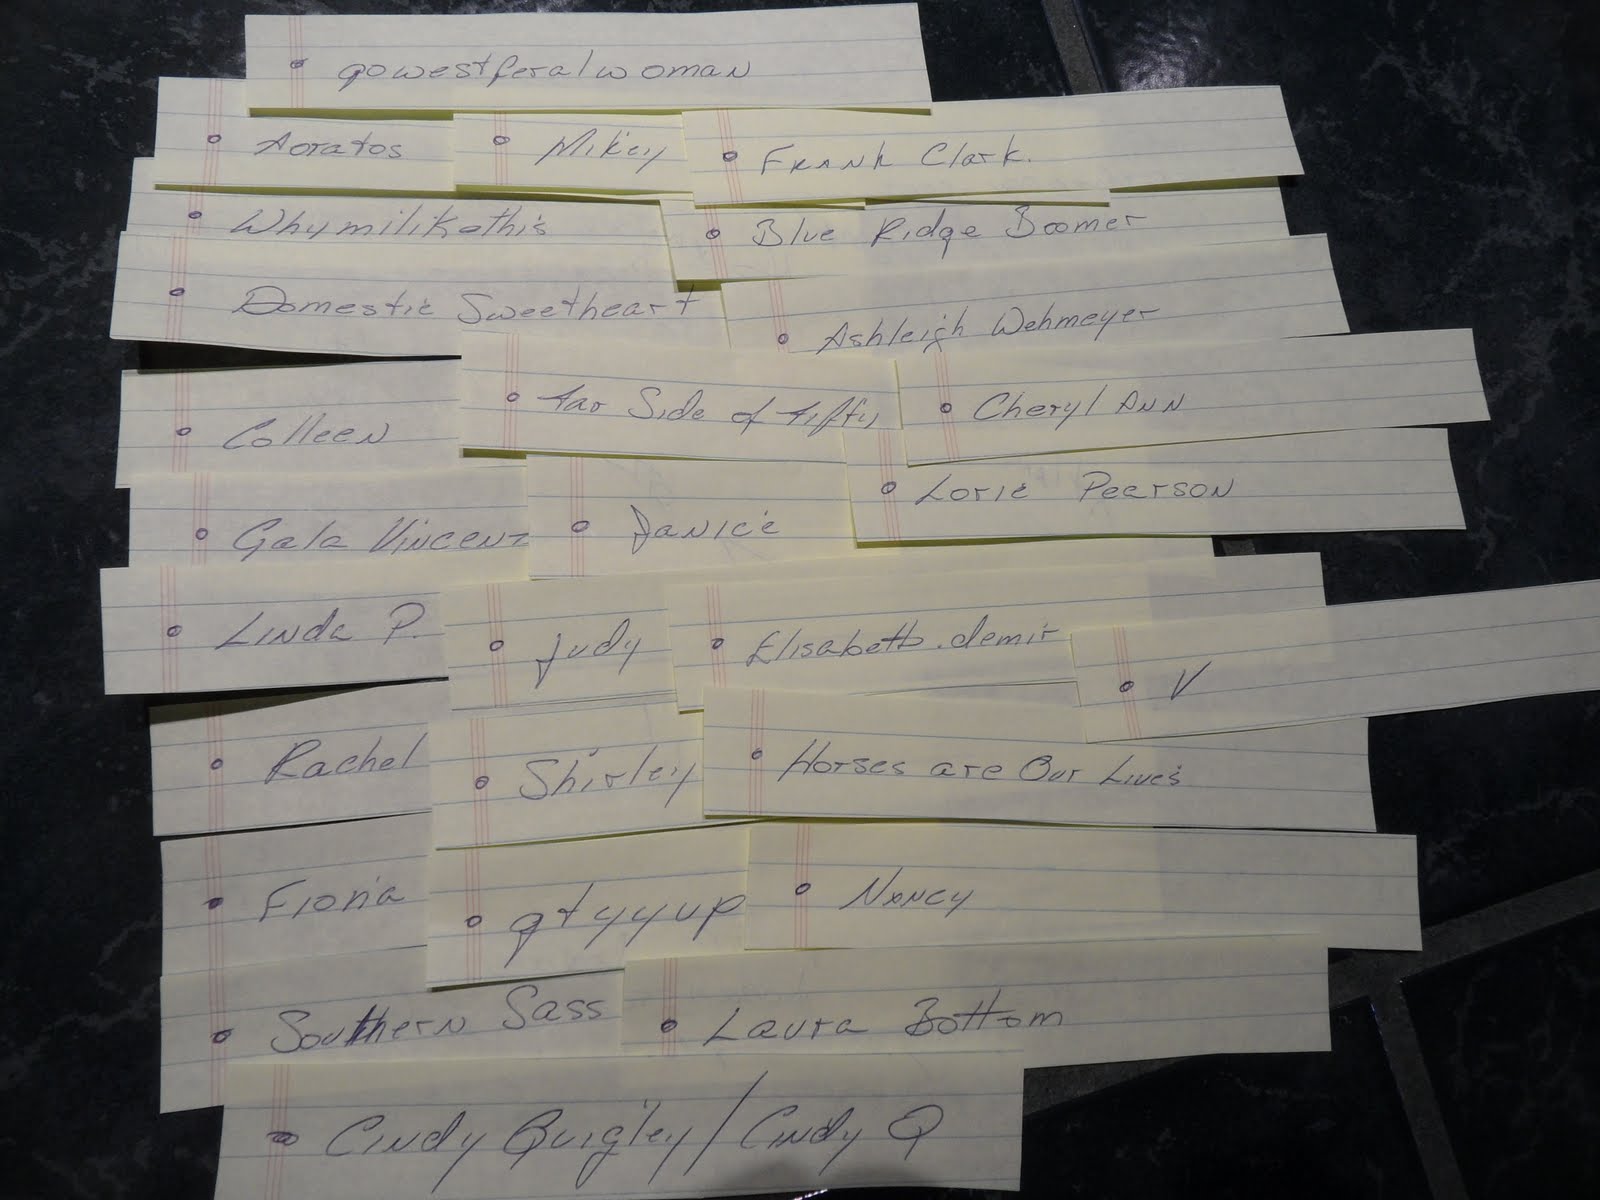 gowestferalwoman
Aoratos
Mikey
Frank Clark.
Whymilikethis
Blue Ridge Boomer
Domestic Sweetheart
Ashleigh Wehmeyer
Colleen
Far Side of Fifty
Cheryl Ann
Gala Vincent
Janice
Lorie Pearson
Linda P.
Judy
Elisabeth.demir
V
Rachel
Shirley
Horses are Our Lives
Fiona
gtyyup
Nancy
Southern Sass
Laura Bottom
Cindy Quigley/Cindy Q